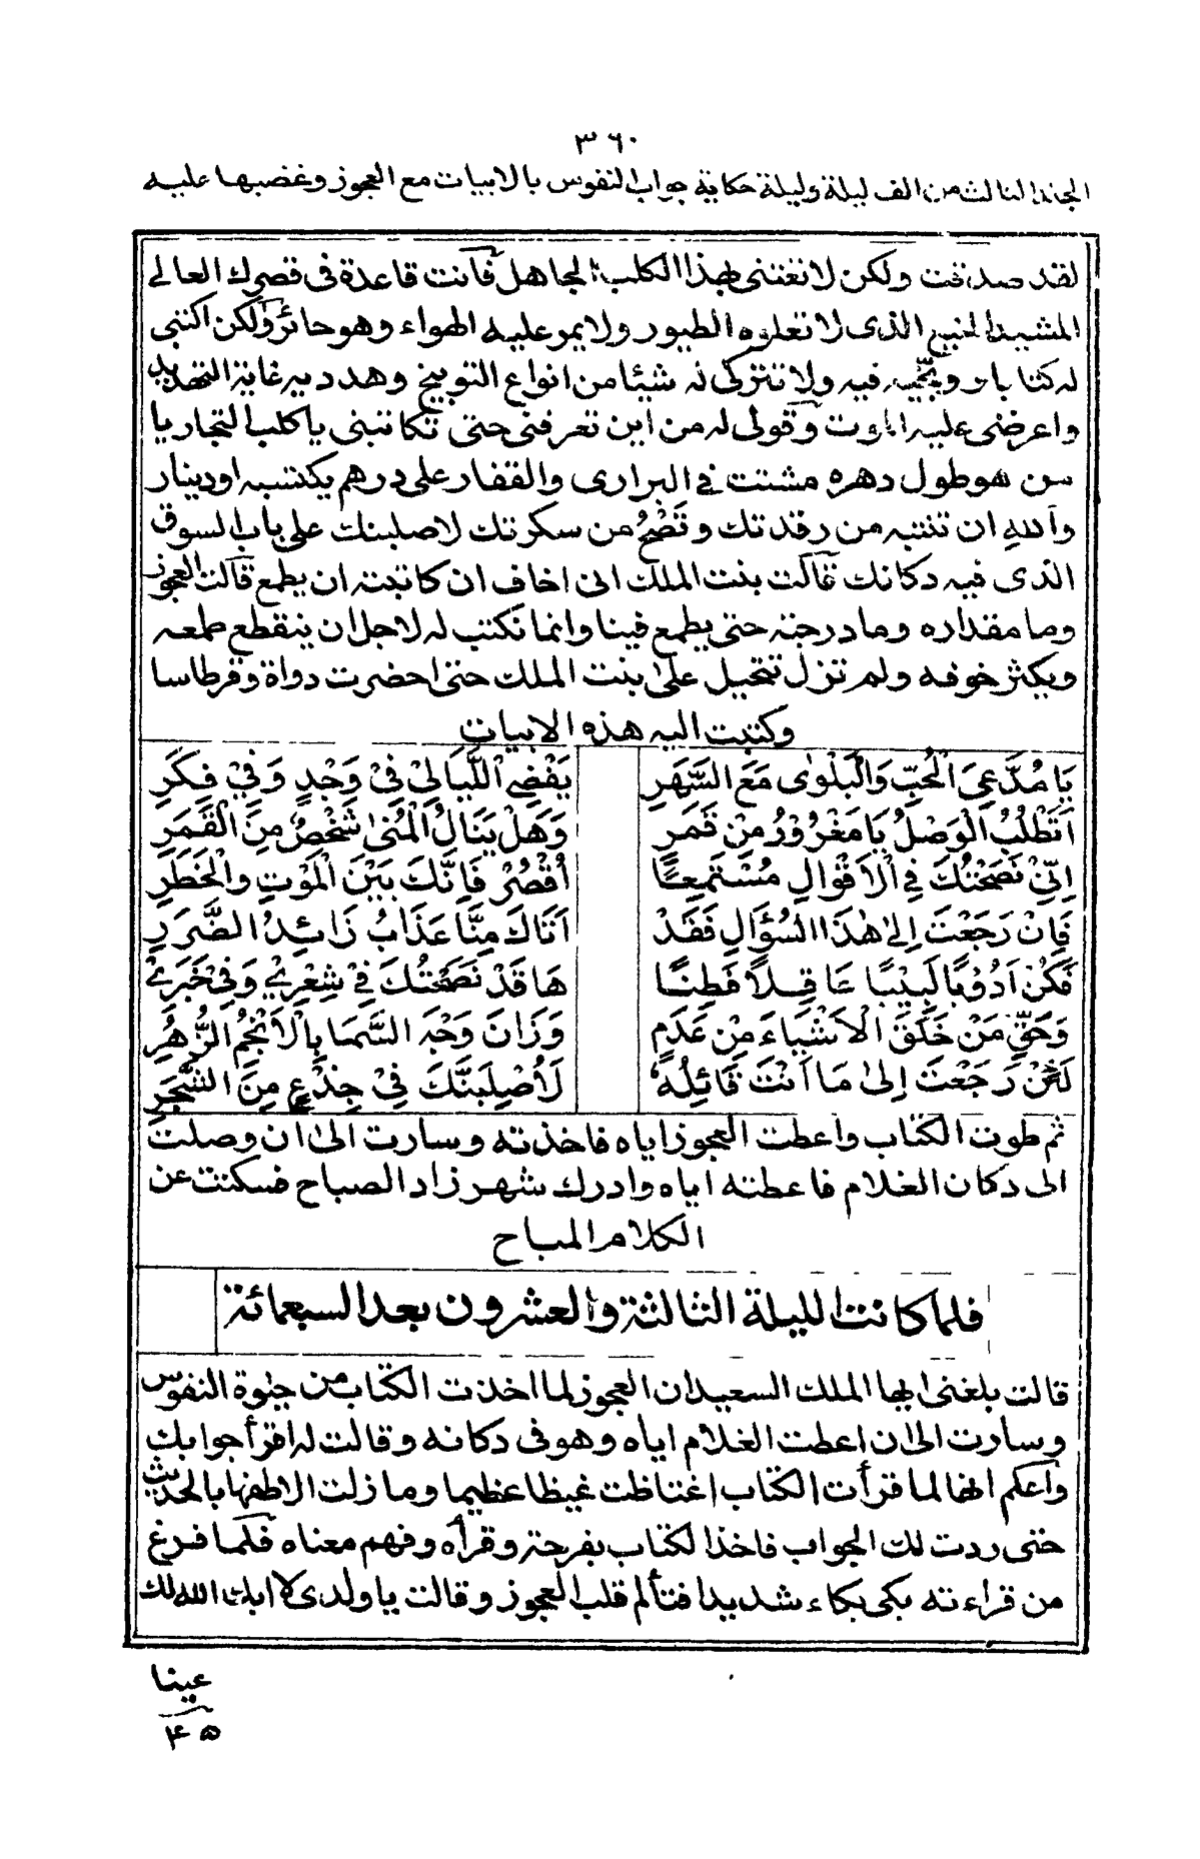 ٣٦٠
الجلد الثالث من الف ليلة وليلة حكاية جواب النفوس بالابيات مع العجوز وغضبها عليه
لقد صدقت ولكن لا تغتنى بهذا الكلب الجاهل فانت قاعدة فى قصرك العالى
المشيد المنيع الذى لا تعلوه الطيور ولا يمر عليه الهواء وهو حائر ولكن اكتبى
له كتابا ووبخيه فيه ولا تتركى له شيئا من انواع التوبيخ وهدديه غاية التهديد
واعرضى عليه الموت وقولى له من اين تعرفنى حتى تكاتبنى يا كلب التجار يا
من هو طول دهره مشتت فى البرارى والقفار على درهم يكتسبه او دينار
والله ان تنتبه من رقدتك وتصح من سكرتك لاصلبنك على باب السوق
الذى فيه دكانك قالت بنت الملك انى اخاف ان كاتبته ان يطمع قالت العجوز
وما مقداره وما درجته حتى يطمع فينا وانما نكتب له لاجل ان ينقطع طمعه
ويكثر خوفه ولم تزل تتحيل على بنت الملك حتى احضرت دواة وقرطاسا
وكتبت اليه هذه الابيات
يَا مُدَّعِىَ الْحُبِّ وَالْبَلْوٰى مَعَ السَّهَرِ يَقْضِى اللَّيَالِىْ فِىْ وَجْدٍ وَفِىْ فِكَرِ
اَتَطْلُبُ الْوَصْلَ يَا مَغْرُوْرُ مِنْ قَمَرِ وَهَلْ يَنَالُ الْمُنٰى شَخْصٌ مِنَ الْقَمَرِ
اِنِّىْ نَصَحْتُكَ فِى الْاَقْوَالِ مُسْتَمِعًا اُقْصُرْ فَاِنَّكَ بَيْنَ الْمَوْتِ وَالْخَطَرِ
فَاِنْ رَجَعْتَ اِلٰى هٰذَا السُّؤَالِ فَقَدْ اَتَاكَ مِنَّا عَذَابٌ زَائِدُ الضَّرَرِ
فَكُنْ اَدُوْبًا لَبِيْبًا عَاقِلًا فَطِنًا هَا قَدْ نَصَحْتُكَ فِىْ شِعْرِىْ وَفِىْ خَبَرِىْ
وَحَقِّ مَنْ خَلَقَ الْاَشْيَاءَ مِنْ عَدَمٍ وَزَانَ وَجْهَ السَّمَا بِالْاَنْجُمِ الزُّهُرِ
لَئِنْ رَجَعْتَ اِلٰى مَا اَنْتَ قَائِلُهُ لَاُصْلِبَنَّكَ فِىْ جِذْعٍ مِنَ الشَّجَرِ
ثم طوت الكتاب واعطت العجوز اياه فاخذته وسارت الى ان وصلت
الى دكان الغلام فاعطته اياه وادرك شهرزاد الصباح فسكتت عن
الكلام المباح
فلما كانت الليلة الثالثة والعشرون بعد السبعمائة
قالت بلغنى ايها الملك السعيد ان العجوز لما اخذت الكتاب من حيوة النفوس
وسارت الى ان اعطت الغلام اياه وهو فى دكانه وقالت له اقرأ جوابك
واعلم انها لما قرأت الكتاب اغتاظت غيظا عظيما وما زلت الاطفها بالحديث
حتى ردت لك الجواب فاخذ الكتاب بفرحة وقرأه وفهم معناه فلما فرغ
من قراءته بكى بكاء شديدا فتألم قلب العجوز وقالت يا ولدى لا ابكى الله لك
عينا
٤٥